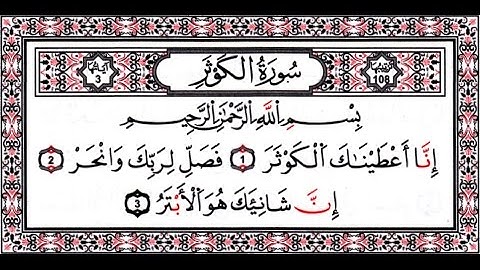 سُورَةُ الْكَوْثَرِ
بِسْمِ اللَّهِ الرَّحْمَٰنِ الرَّحِيمِ
إِنَّا أَعْطَيْنَاكَ الْكَوْثَرَ 1 فَصَلِّ لِرَبِّكَ وَانْحَرْ 2
إِنَّ شَانِئَكَ هُوَ الْأَبْتَرُ 3